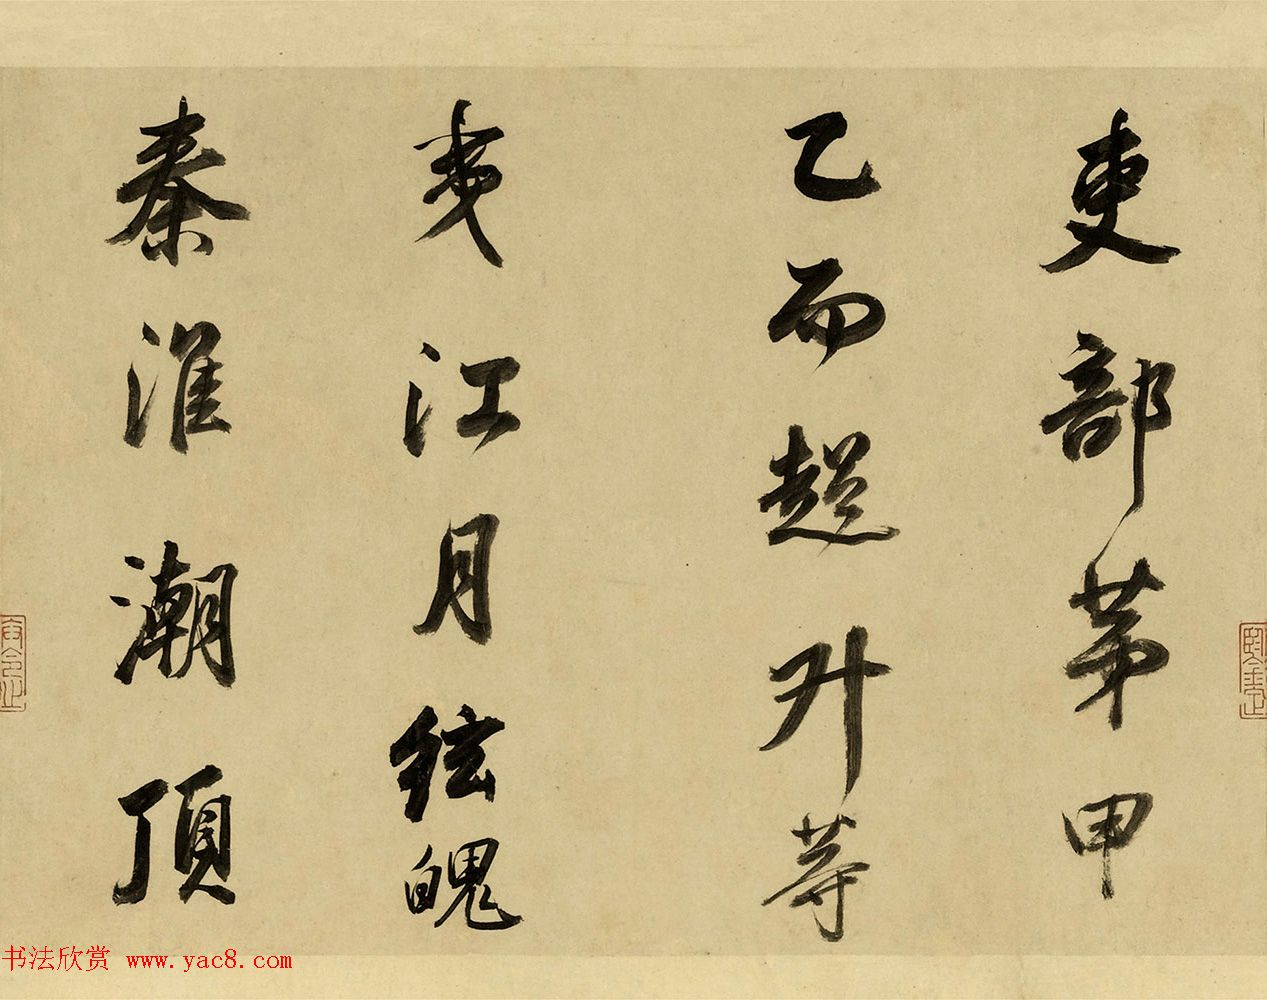 吏部第甲
乙而超升等
夷江月弦魄
秦淮潮頂
书法欣赏 www.yac8.com